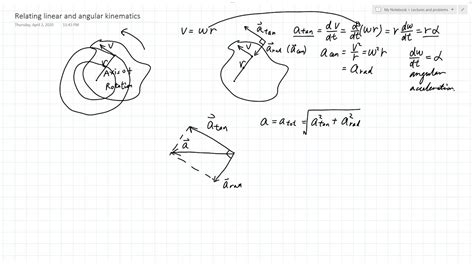 Relating linear and angular kinematics
Thursday, April 2, 2020
My Notebook > Lectures and problems
v
r
Axis of
Rotation
v = ωr
a⃗tan
v
a⃗rad (a⃗cen)
r
atan = dv/dt = d/dt (ωr) = r dω/dt = rα
acen = v²/r = ω²r
= arad
dω/dt = α
angular
acceleration
a⃗tan
a⃗
a⃗rad
a = atot = √(a²tan + a²rad)